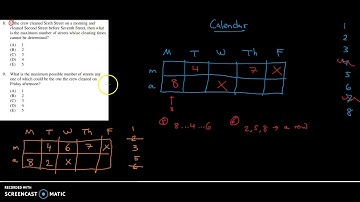 8. If the crew cleaned Sixth Street on a morning and
cleaned Second Street before Seventh Street, then what
is the maximum number of streets whose cleaning times
cannot be determined?
(A) 1
(B) 2
(C) 3
(D) 4
(E) 5
9. What is the maximum possible number of streets any
one of which could be the one the crew cleaned on
Friday afternoon?
(A) 1
(B) 2
(C) 3
(D) 4
(E) 5
Calendar
M T W Th F
m 4 7 X
a 8 X
3
① 8...4...6
② 2,5,8 → in a row
1
2
3
8
M T W Th F
m 4 6 7 X
a 8 2 X
1
2
3
5
6
RECORDED WITH
SCREENCAST MATIC